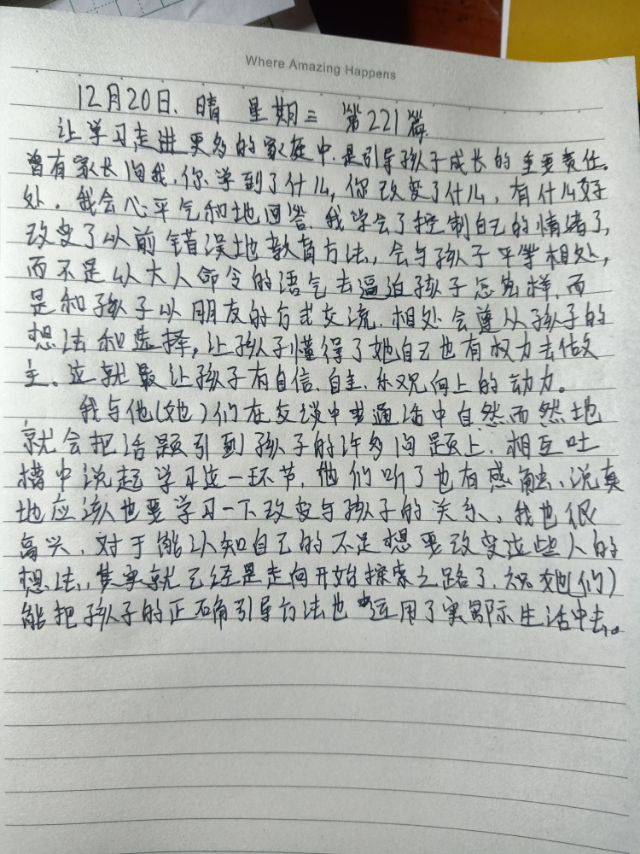 Where Amazing Happens
12月20日、晴 星期二 第221篇
让学习走进更多的家庭中,是引导孩子成长的主要责任。
曾有家长问我,你学到了什么,你改变了什么,有什么好
处。我会心平气和地回答,我学会了控制自己的情绪了,
改变了以前错误地教育方法,会与孩子平等相处,
而不是以大人命令的语气去逼迫孩子怎么样,而
是和孩子以朋友的方式交流,相处会遵从孩子的
想法和选择,让孩子懂得了她自己也有权力去做
主。这就最让孩子有自信、自主、乐观向上的动力。
我与他(她)们在交谈中普通话中自然而然地
就会把话题引到孩子的许多问题上,相互吐
槽中说起学习这一环节,他们听了也有感触、说真
地应该也要学习一下改变与孩子的关系,我也很
高兴,对于能认知自己的不足想要改变这些人的
想法,其实就已经是走向开始探索之路了,祝他(她们)
能把孩子的正确引导方法也运用了实际生活中去。